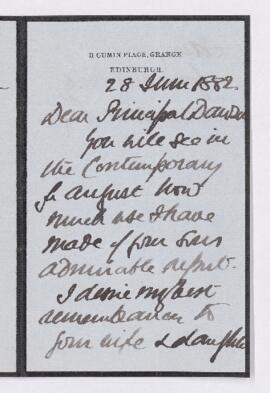 11 CUMIN PLACE, GRANGE
EDINBURGH.
28 June 1882
Dear Principal Dawson
You will see in
the Contemporary
for August how
much use I have
made of your son's
admirable report.
I desire my best
remembrances to
your wife & daughter